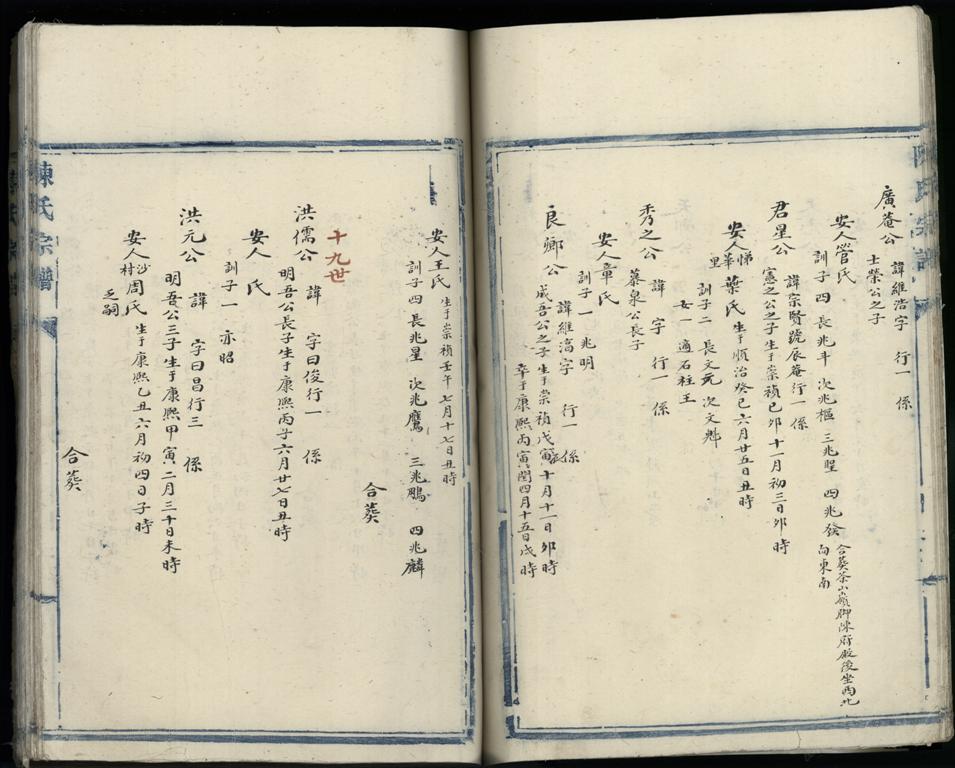 陳氏宗譜
廣菴公 諱維浩字 行一 係
士榮公之子
安人管氏
訓子四 長兆斗 次兆樞 三兆聖 四兆發
合葵茶山嶺脚陳府殿後坐西北
向東南
君星公 諱宗賢號辰菴行一係
憲之公之子生于崇禎己卯十一月初三日卯時
安人悌華里葉氏生于順治癸巳六月廿五日丑時
訓子二 長文元 次文魁
女一 適石柱王
秀之公 諱 字 行一 係
慕泉公長子
安人章氏
訓子一 兆明
良卿公 諱維滈字 行一 係
成吾公之子生于崇禎戊寅十月十一日卯時
卒于康熙丙寅閏四月十五日戌時
安人王氏 生于崇禎壬午七月十七日丑時
訓子四 長兆星 次兆鷹 三兆鵰 四兆麟
合葵
十九世
洪儒公 諱 字曰俊行一 係
明吾公長子生于康熙丙子六月廿七日丑時
安人 氏
訓子一 亦昭
洪元公 諱 字曰昌行三 係
明吾公三子生于康熙甲寅二月三十日未時
安人沙村周氏生于康熙乙丑六月初四日子時
乏嗣
合葵
陳氏宗譜